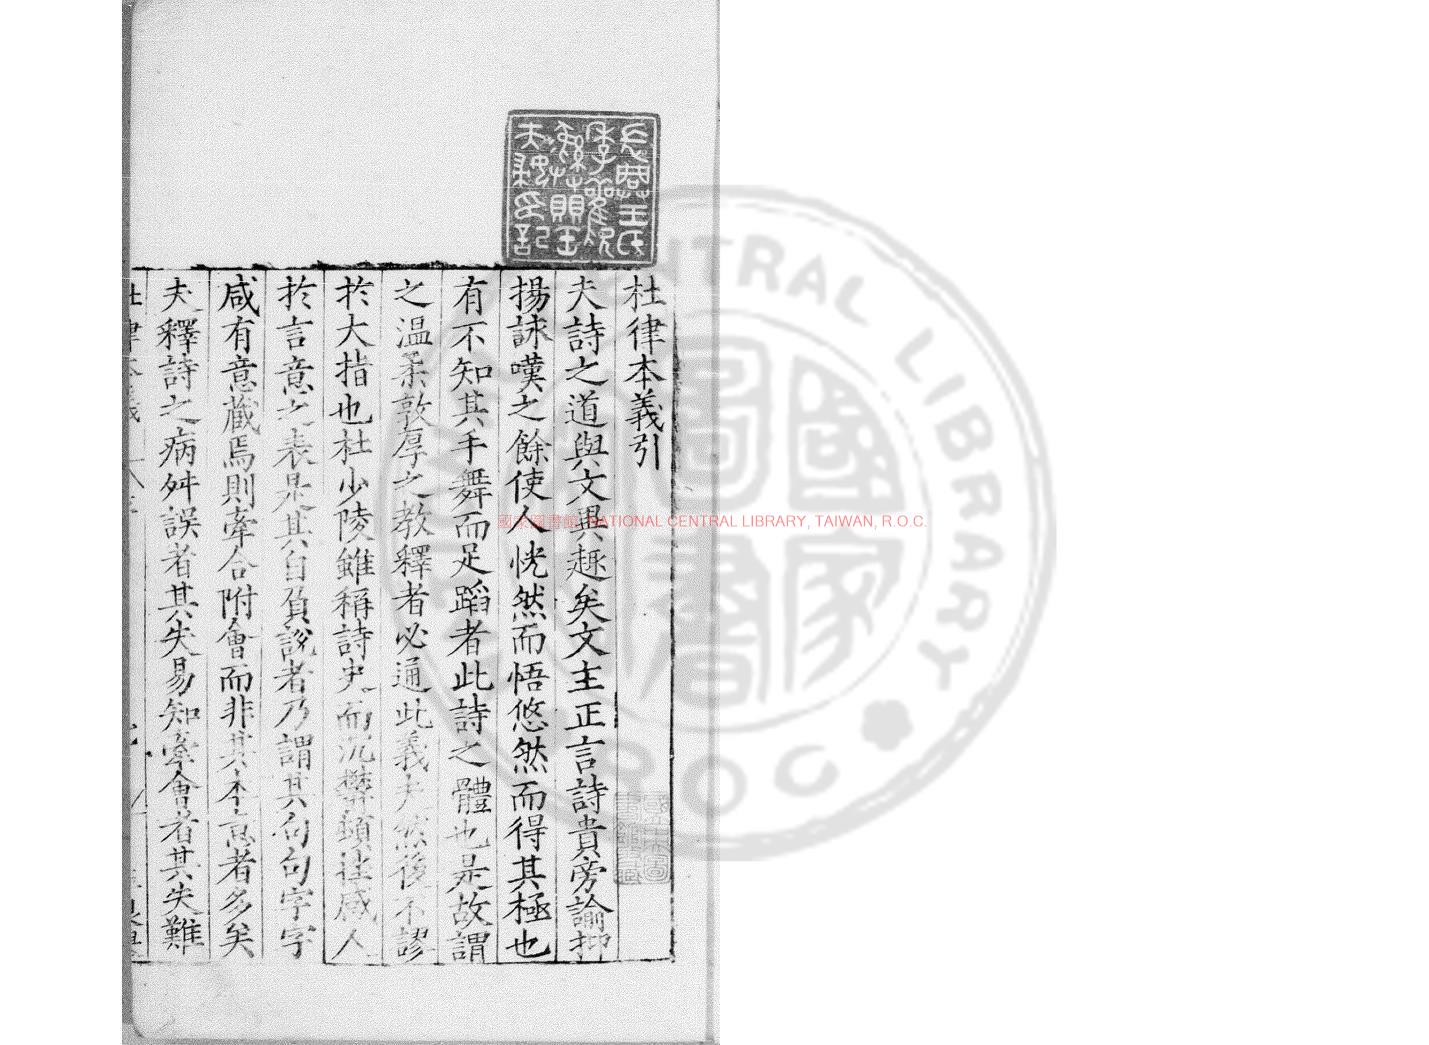 杜律本義引
夫詩之道與文異趣矣文主正言詩貴旁諭抑
揚詠嘆之餘使人恍然而悟悠然而得其極也
有不知其手舞而足蹈者此詩之體也是故謂
之温柔敦厚之教釋者必通此義夫然後不謬
扵大指也杜少陵雖稱詩史而沉欝頓挫感人
扵言意之表是其自負說者乃謂其句句字字
咸有意蔵焉則牽合附會而非其本意者多矣
夫釋詩之病舛誤者其失易知牽會者其失難
杜律本義
國家圖書館 NATIONAL CENTRAL LIBRARY, TAIWAN, R.O.C.
CENTRAL LIBRARY
ROC
國家圖書